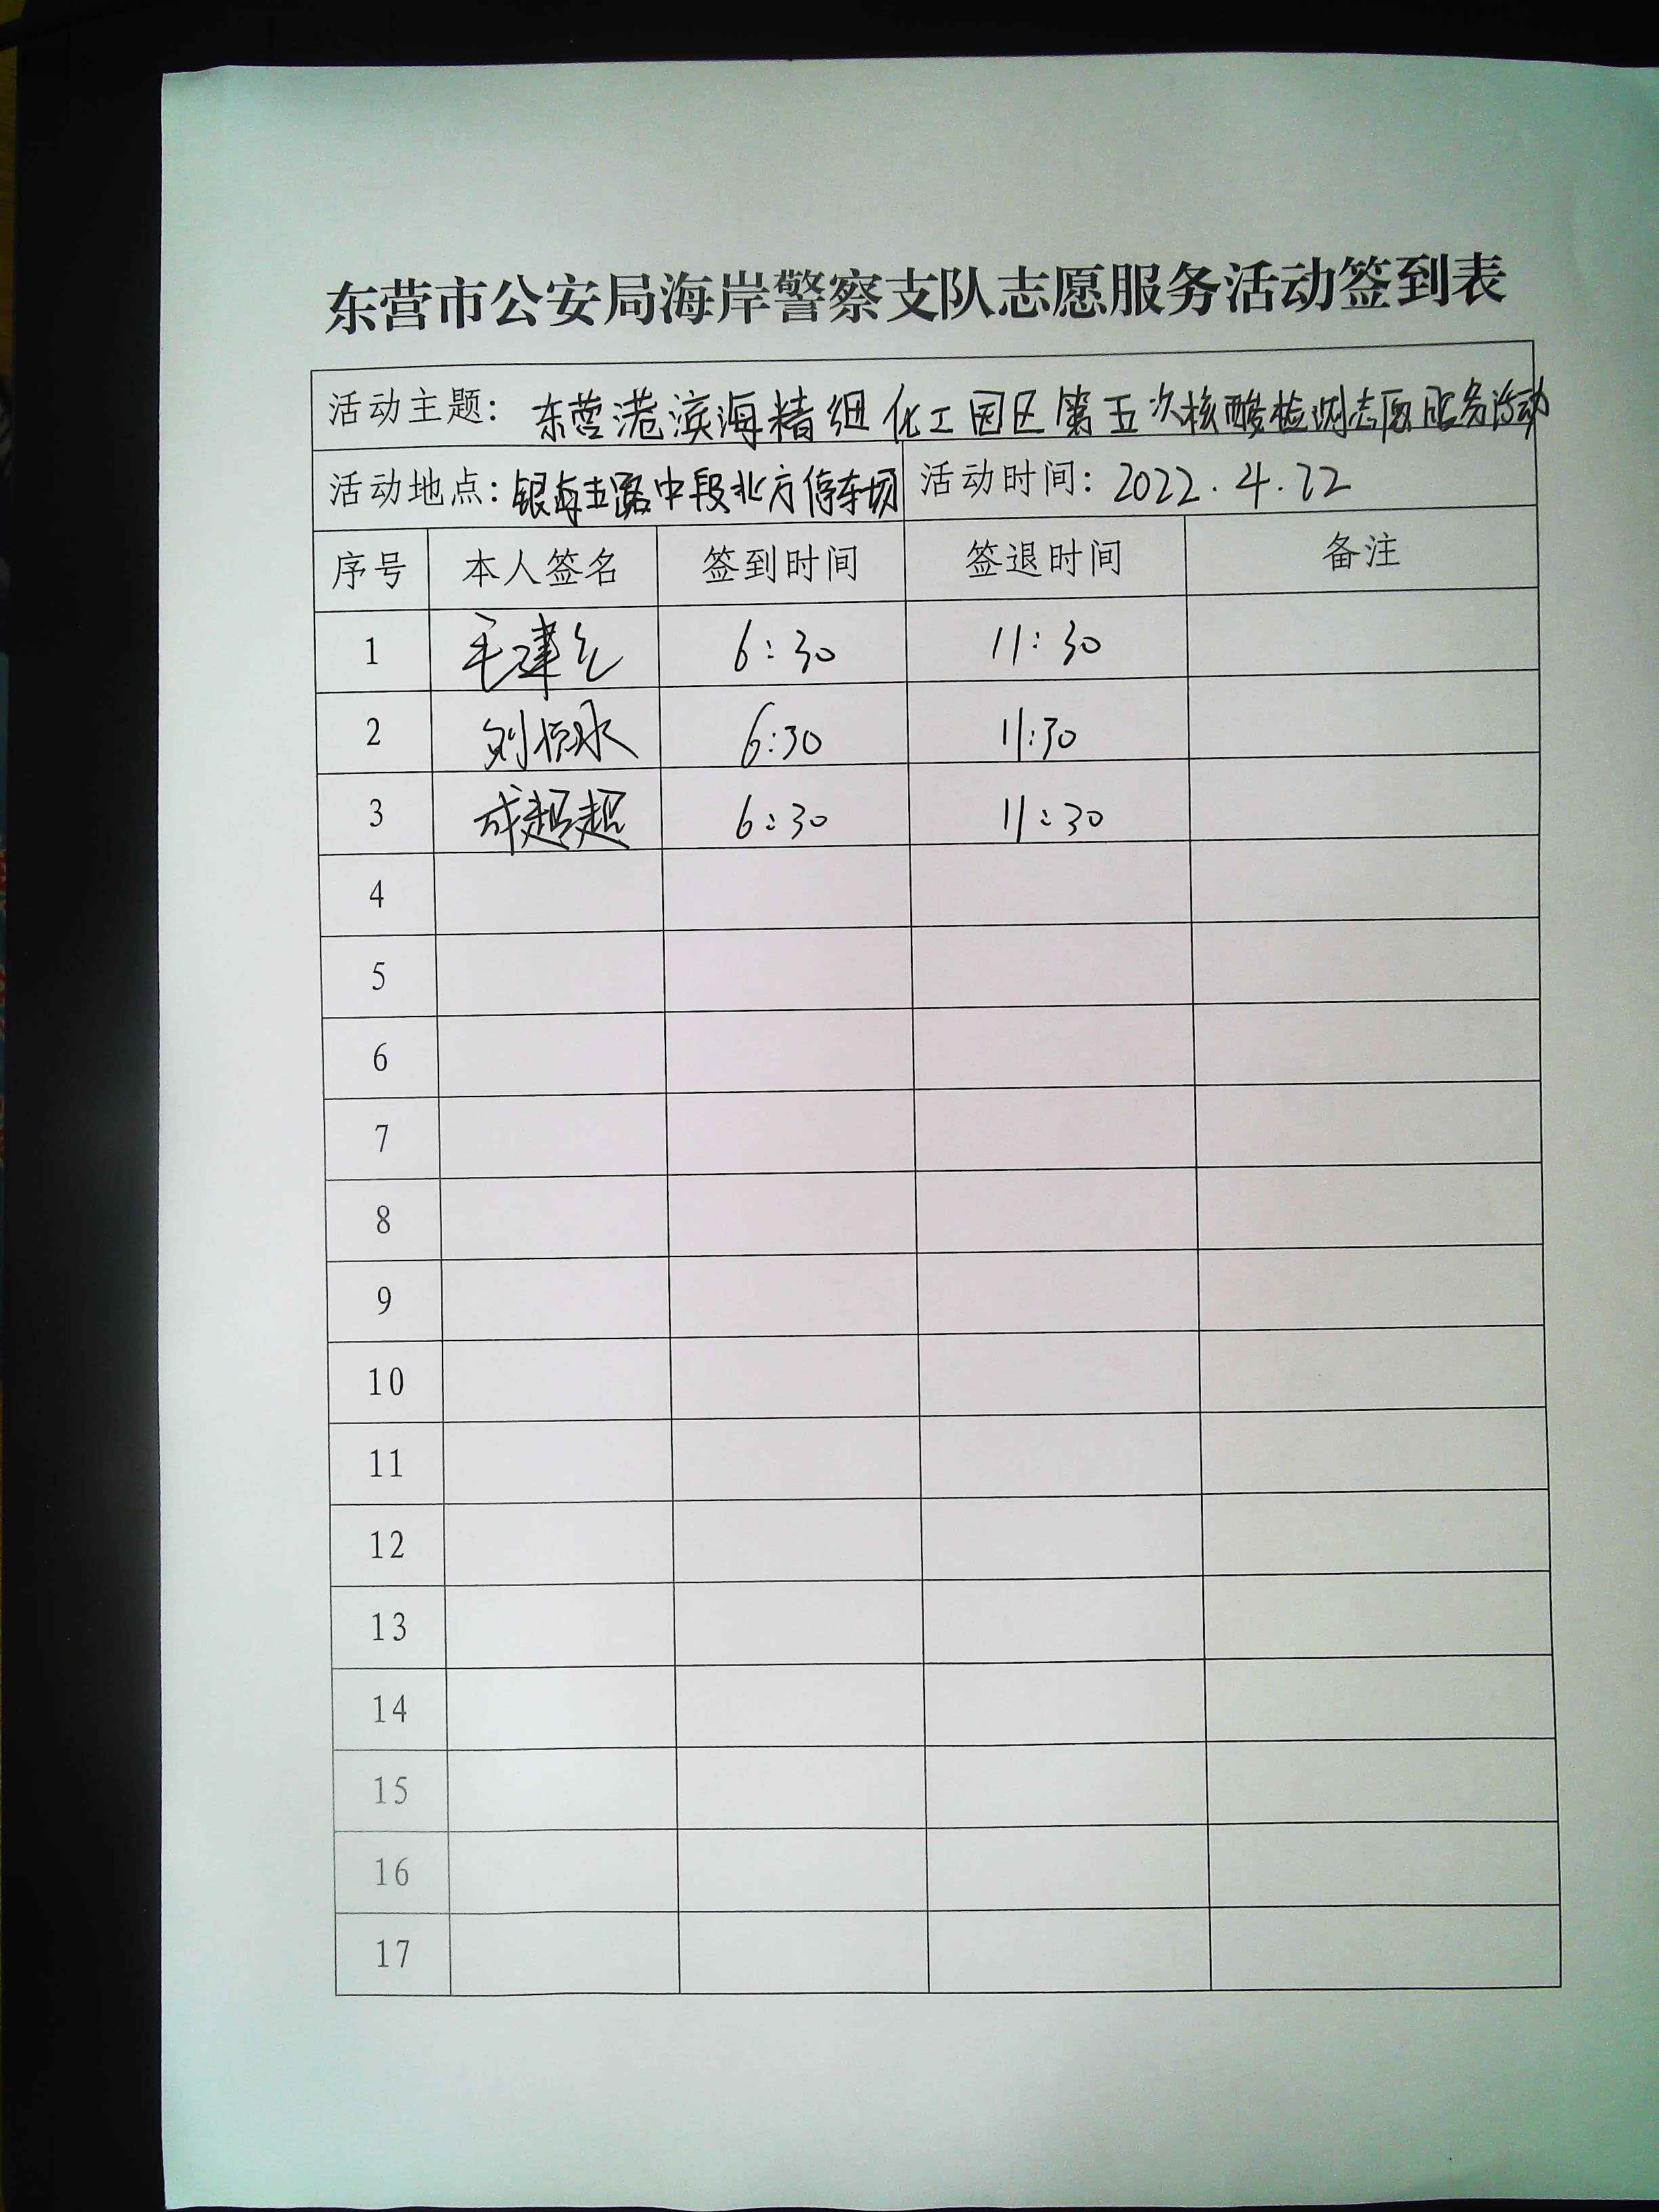 东营市公安局海岸警察支队志愿服务活动签到表
活动主题: 东营港滨海精细化工园区第五次核酸检测志愿服务活动
活动地点: 银海五路中段北方停车场 活动时间: 2022.4.22
序号 本人签名 签到时间 签退时间 备注
1 毛建 6:30 11:30
2 刘 6:30 11:30
3 成超超 6:30 11:30
4
5
6
7
8
9
10
11
12
13
14
15
16
17